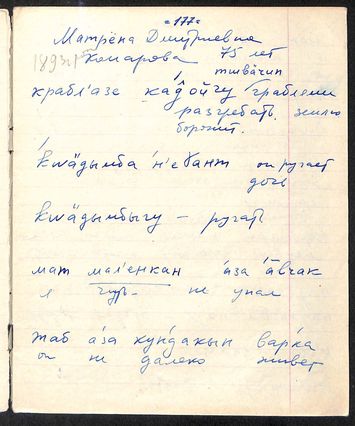 =177=
Матрёна Дмитриевна
1893г. Комарова 75 лет
тывачип
крабл'азе кадо́йгу грабляни
разгребать землю
боронит.
кwäдымба н'еɣант он ругает
дочь
кwäдымбыгу – ругать
мат мал'енкан а́за а̄вчак
я чуть- не упал
таб а́за кундакын варка
он не далеко живет